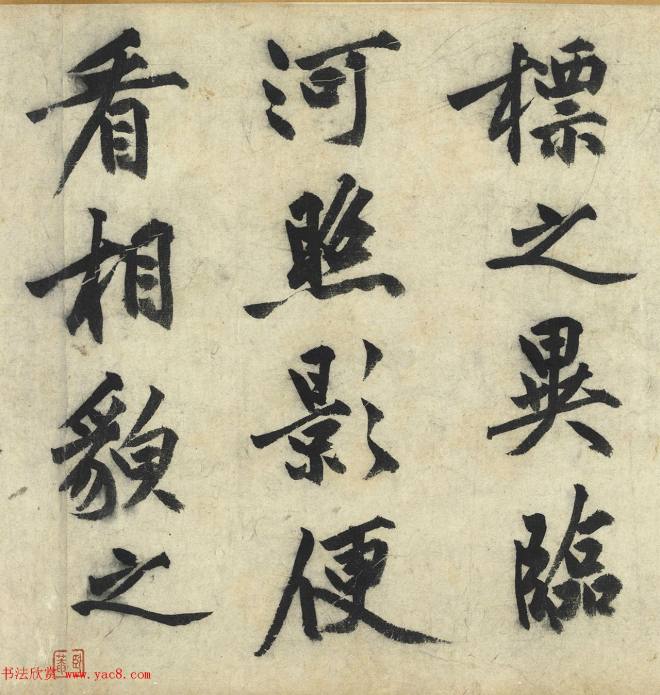 標之異臨
河照影便
看相貌之
书法欣赏 www.yac8.com